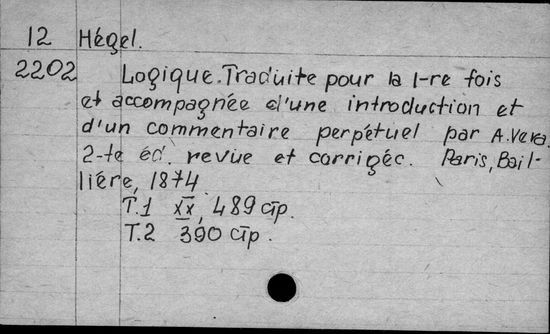 12 Hégel.
2202 Logique. Traduite pour la 1-re fois
et accompagnée d'une introduction et
d'un commentaire perpétuel par A. Vera.
2-te éd. revue et corrigéc. Paris, Bail-
liére, 1874
T.1 XX, 489 стр.
T.2 390 стр.